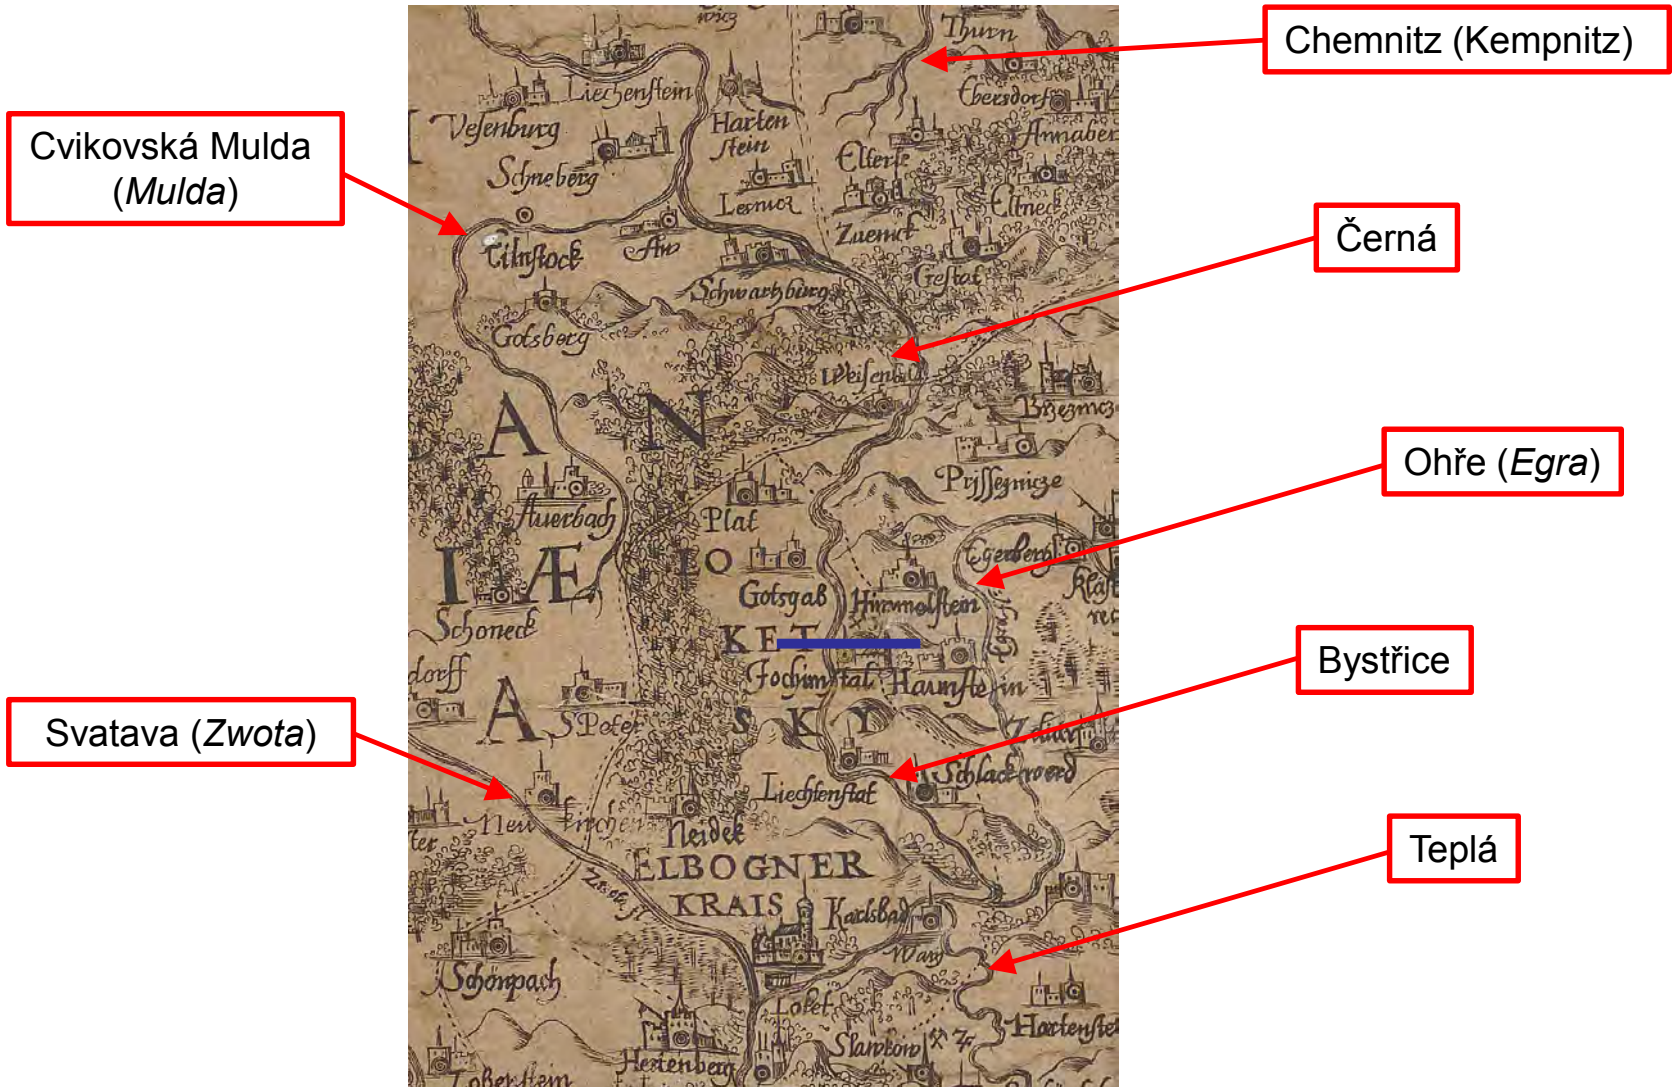 Chemnitz (Kempnitz)
Cvikovská Mulda
(Mulda)
Černá
Ohře (Egra)
Bystřice
Svatava (Zwota)
Teplá
Thurn
Liechenstein
Ebersdorf
Vesenburg
Harten
stein
Annaber
Schneberg
Elterle
Lesnicz
Eltneck
Zuenick
Au
Gestat
Schwartzburg
Gotsberg
Brzeznicz
A N
Prissegnicze
Auerbach
Plat
Egerberg
LO
I Æ
Gotsgab
Himmelstein
Klaste
rec
Egra fl
Schoneck
KET
Jochimstal
Haunstein
dorff
A
S Peter
SKY
Schlackwerd
Liechtenstat
Neukirchen
ter
Neidek
ELBOGNER
KRAIS
Zwota fl
Karlsbad
Wary
Schönpach
Loket
Hartenste
Slawkow
Hertenberg